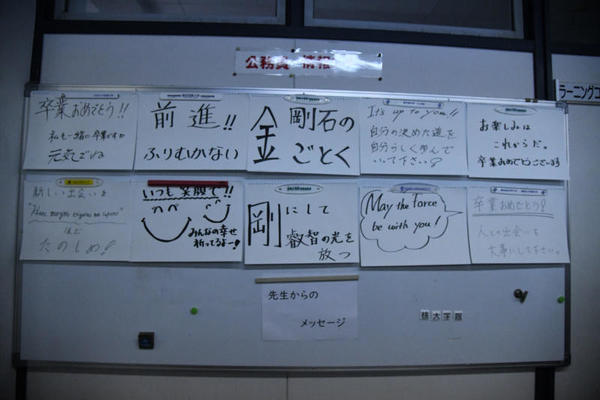 公務員 情報
ラーニングコ
卒業おめでとう!!
私も一緒に卒業ですが
元気でね
前進!!
ふりむかない
金剛石の
ごとく
It's up to you!!
自分の決めた道を
自分らしく歩んで
いって下さい
お楽しみは
これからだ。
卒業おめでとうございます
新しい出会いを
ほど
たのしめ!
いつも笑顔で!!
みんなの幸せ
祈ってるよー!
剛にして
叡智の光を
放つ
May the Force
be with you!
卒業おめでとう!
人との出会いを
大事にして下さい。
先生からの
メッセージ